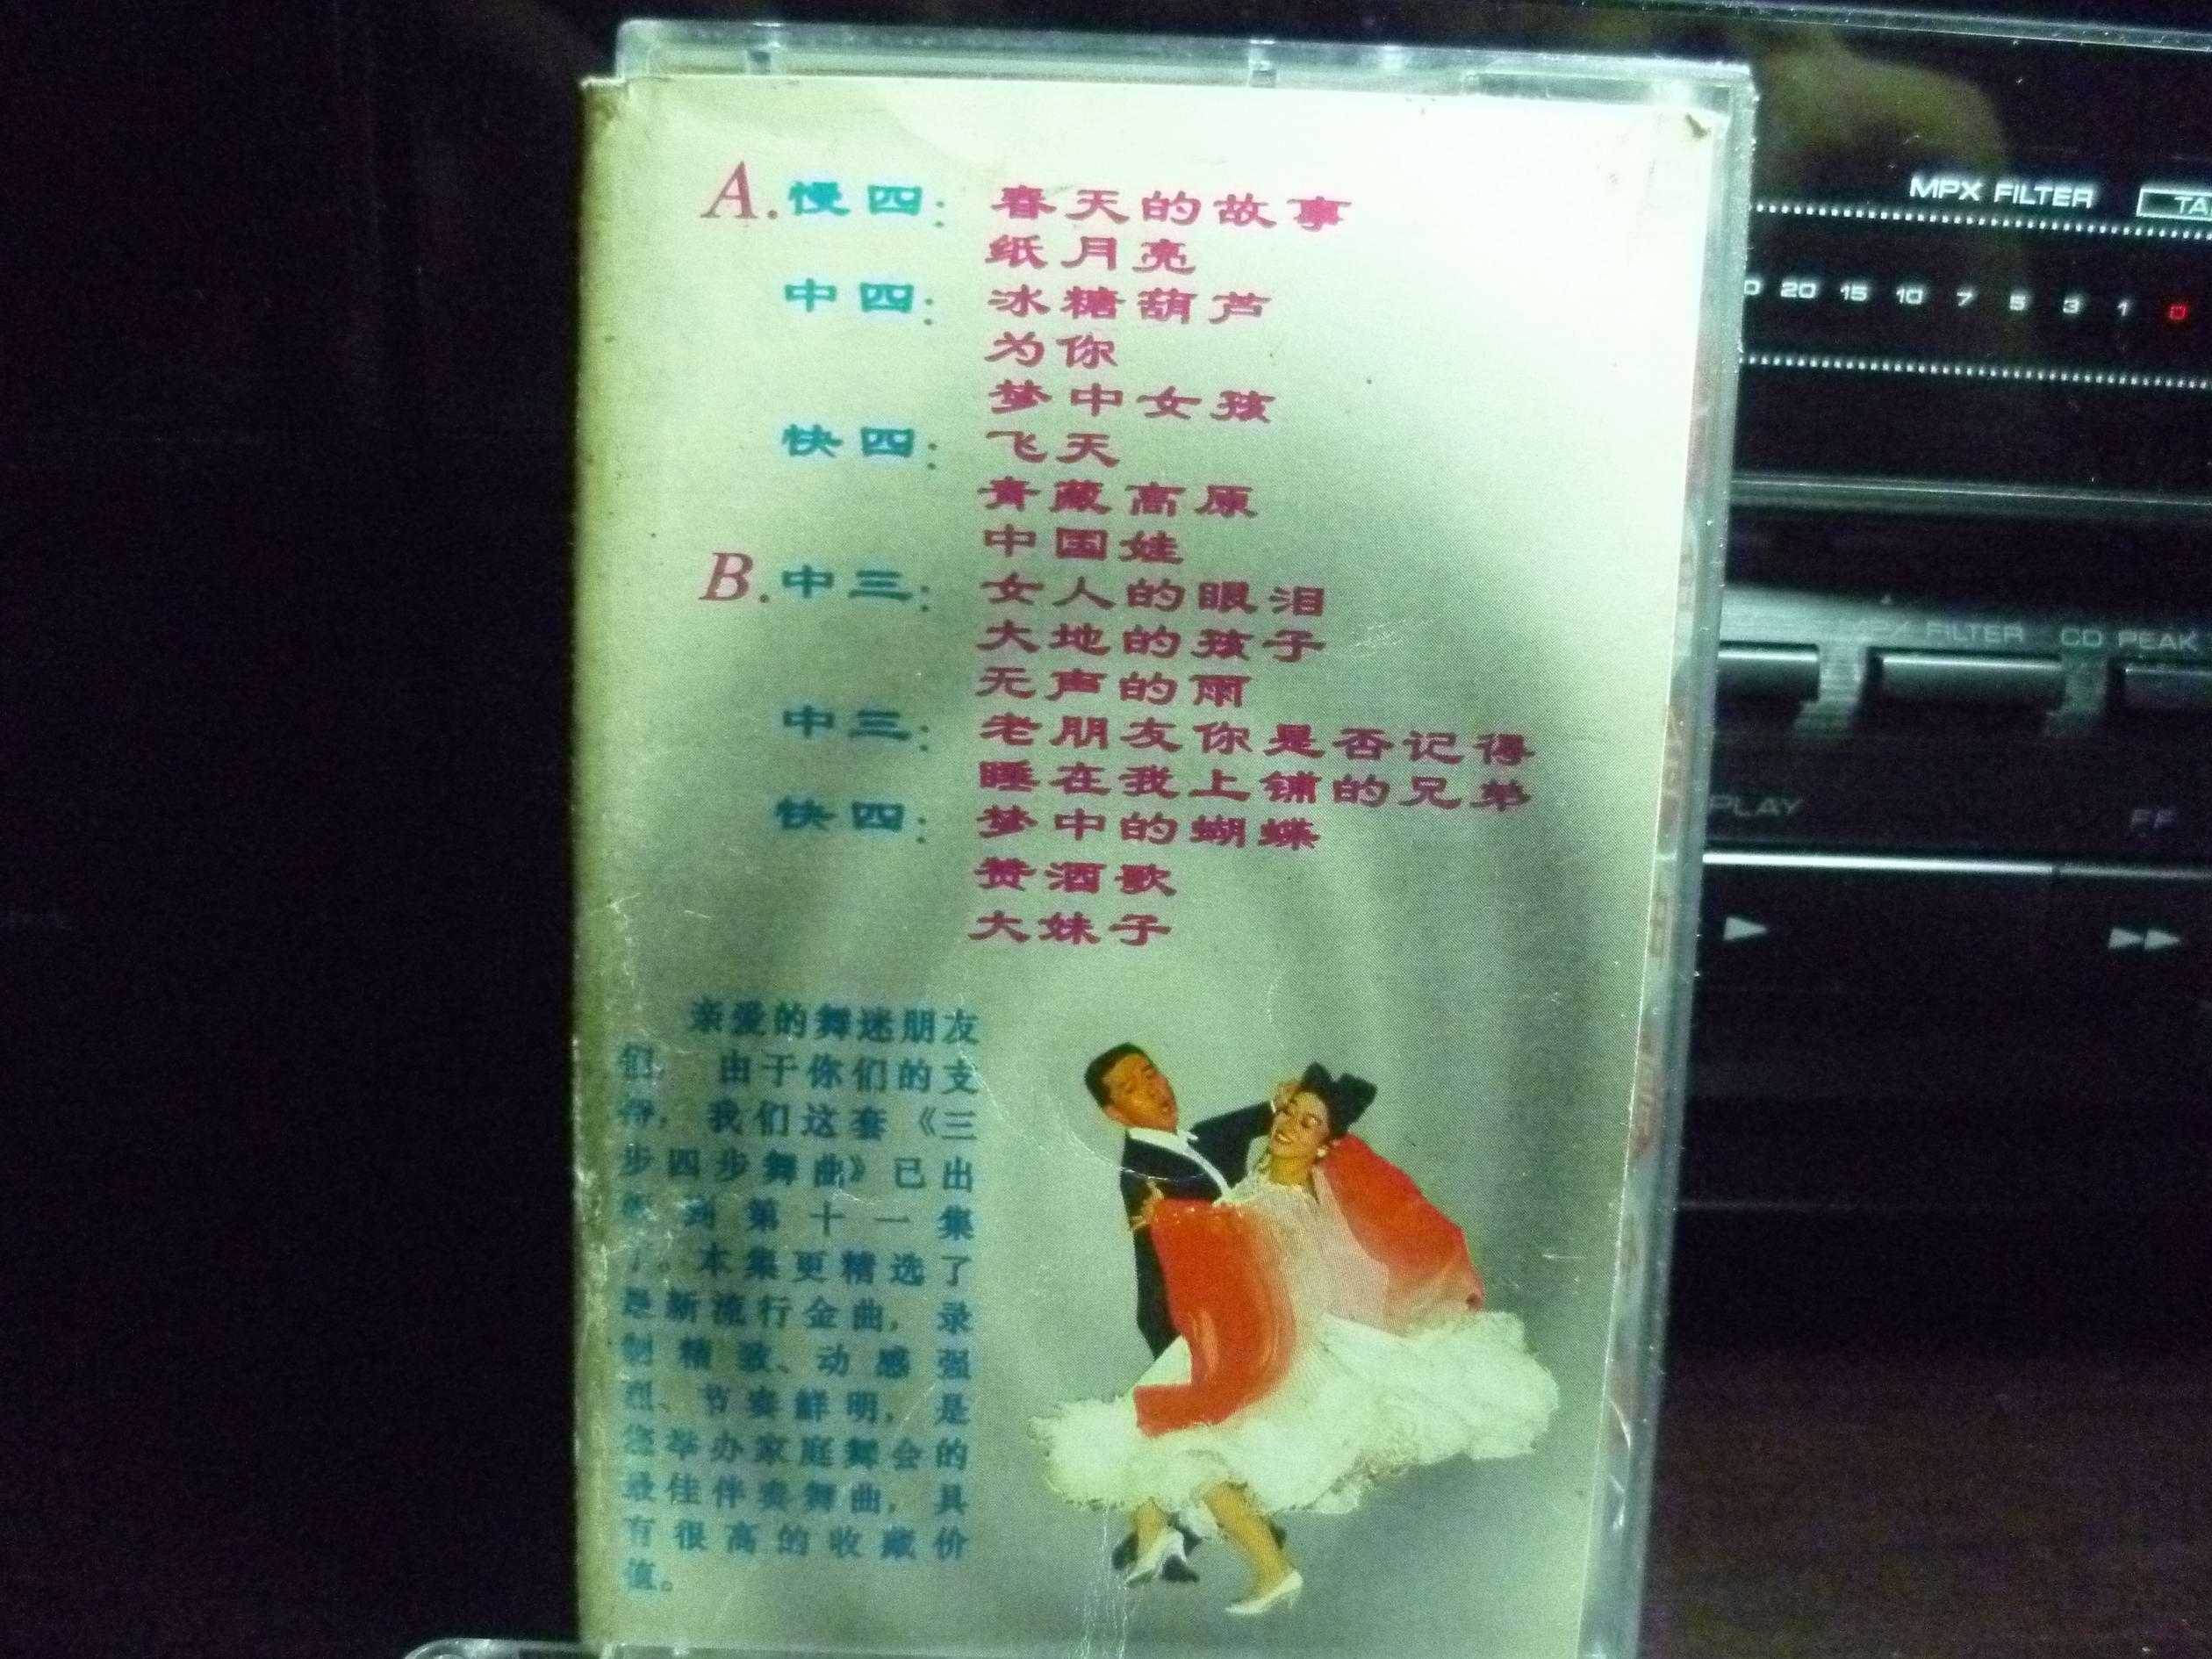 A.慢四：春天的故事
纸月亮
中四：冰糖葫芦
为你
梦中女孩
快四：飞天
青藏高原
中国娃
B.中三：女人的眼泪
大地的孩子
无声的雨
中三：老朋友你是否记得
睡在我上铺的兄弟
快四：梦中的蝴蝶
赞酒歌
大妹子
亲爱的舞迷朋友
们，由于你们的支
持，我们这套《三
步四步舞曲》已出
到第十一集
了。本集更精选了
最新流行金曲，录
制精致、动感强
烈、节奏鲜明，是
您举办家庭舞会的
最佳伴奏舞曲，具
有很高的收藏价
值。
MPX FILTER
20 15 10 7 5 3 1 0
MPX FILTER CD PEAK
PLAY FF